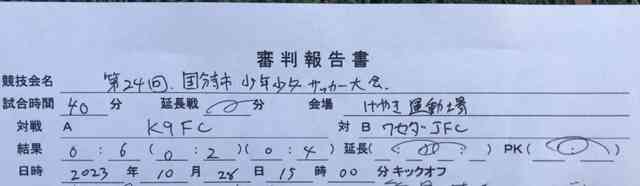 審判報告書
競技会名 第24回 国分寺市 少年少女サッカー大会
試合時間 40 分 延長戦 分 会場 けやき運動場
対戦 A K9FC 対 B ワセダJFC
結果 0 : 6 ( 0 : 2 )( 0 : 4 ) 延長( : ) PK( : )
日時 2023 年 10 月 28 日 15 時 00 分 キックオフ